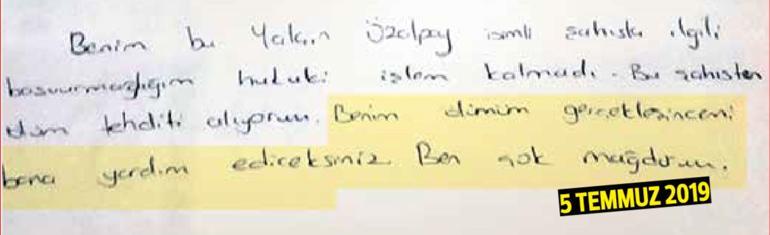 Benim bu Yalçın Özalpay isimli şahısla ilgili
başvurmadığım hukuki işlem kalmadı. Bu şahıstan
ölüm tehditi alıyorum. Benim ölimim gerçekleşincemi
bana yardım ediceksiniz. Ben çok mağdurum.
5 TEMMUZ 2019